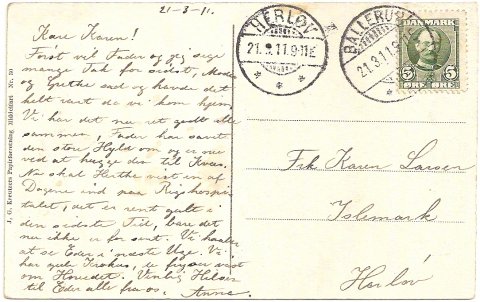 21-3-11.
Kære Karen!
Først vil Fader og jeg sige
mange Tak for sidst, Moder
og Grethe sad og havde det
helt rart da vi kom hjem.
Vi har det nu ret godt alle
sammen, Fader har savet
den store Hyld om og er nu
ved at hugge den til Kvas.
Nu skal Herthe vist en af
Dagene ind paa Rigshospi-
talet, det er rent galt i
den sidste Tid, bare det
nu ikke er for sent. Vi haaber
at se Eder i næste Uge. Vi
har gule Krokus, de fryser vist
om Hovedet. Venlig Hilsen
til Eder alle fra os. Anna.
J. G. Kreutzers Papirforretning Middelfart No. 10
HERLØV
21.3.11. 9-11E
BALLERUP
21.3.11
DANMARK
5 5
ØRE ØRE
Frk Karen Larsen
Islemark
Herløv